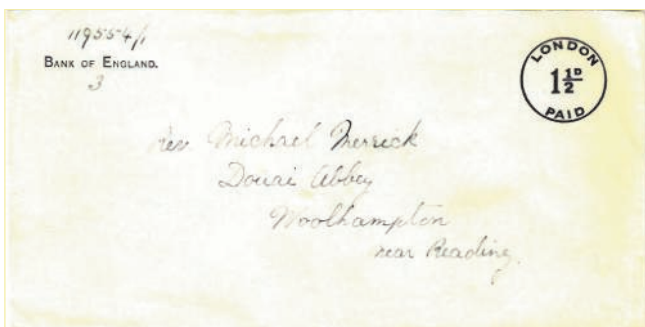 119554/1
BANK OF ENGLAND.
3
LONDON
1½D
PAID
Rev Michael Merrick
Douai Abbey
Woolhampton
near Reading.